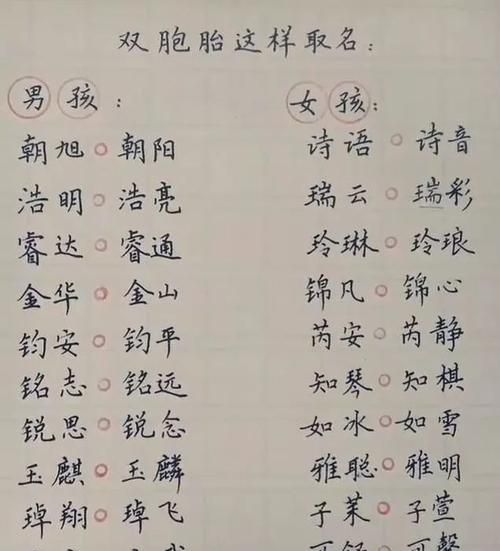 双胞胎这样取名：
男孩： 女孩：
朝旭 朝阳 诗语 诗音
浩明 浩亮 瑞云 瑞彩
睿达 睿通 玲琳 玲琅
金华 金山 锦凡 锦心
钧安 钧平 芮安 芮静
铭志 铭远 知琴 知棋
锐思 锐念 如冰 如雪
玉麒 玉麟 雅聪 雅明
琸翔 琸飞 子茱 子萱